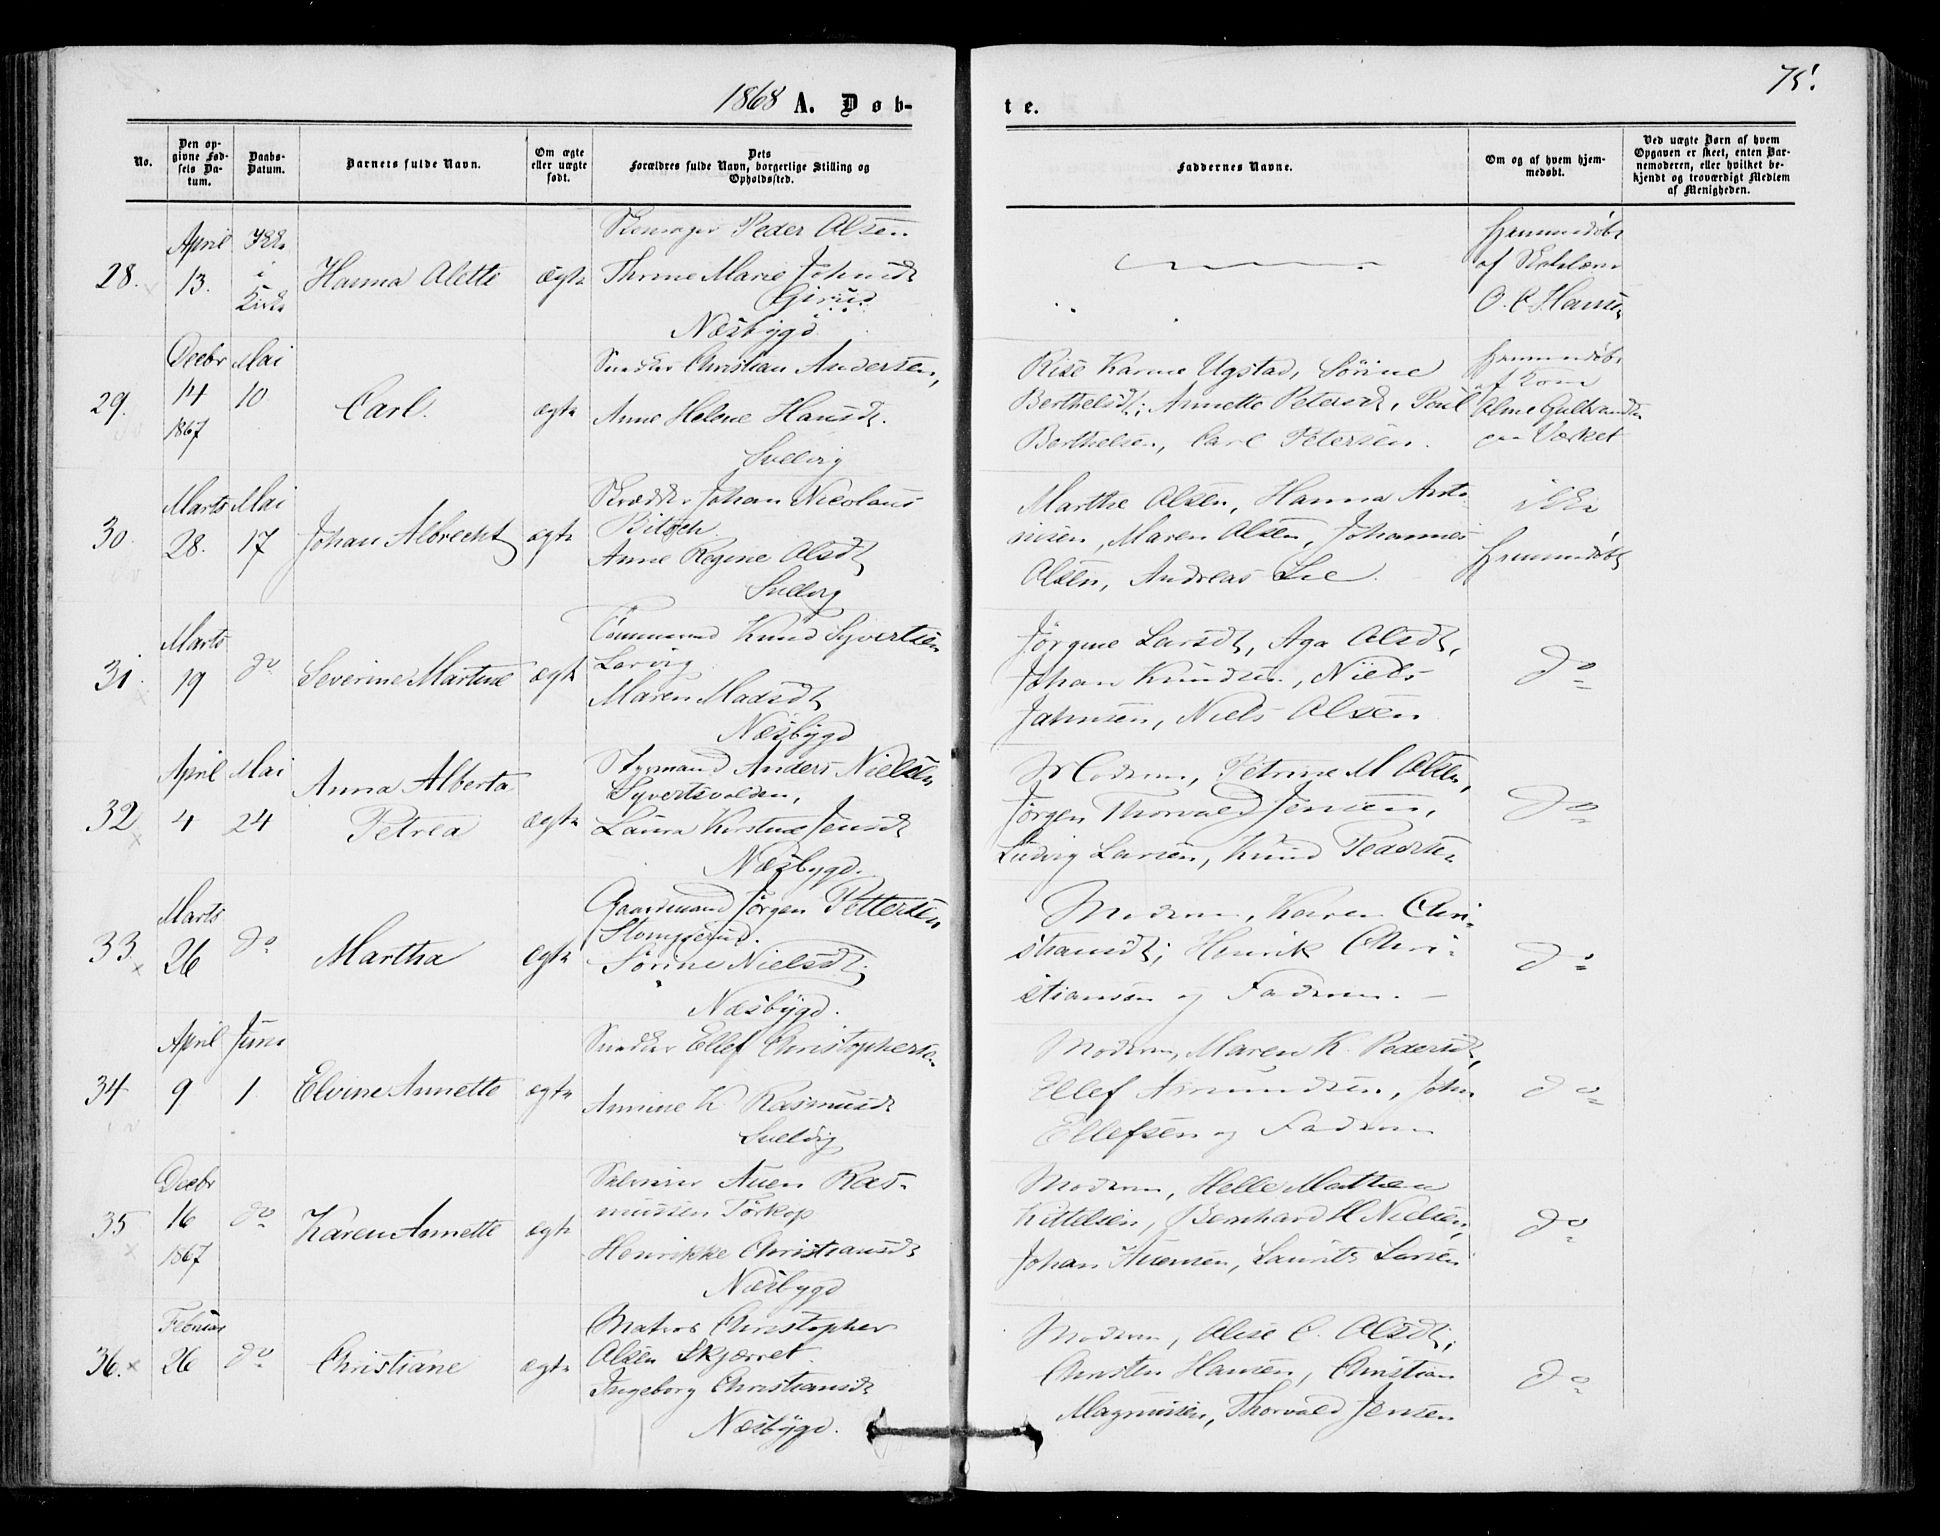 1868 A. Døb-
te.
75.
No.
Den opgivne Fødsels Datum.
Daabs-Datum.
Barnets fulde Navn.
Om ægte eller uægte født.
Dets Forældres fulde Navn, borgerlige Stilling og Opholdssted.
Faddernes Navne.
Om og af hvem hjemmedøbt.
Ved uægte Børn af hvem Opgaven er skeet, enten Barnemoderen, eller hvilket bekjendt og troværdigt Medlem af Menigheden.
28.
April
13.
Ikke
i
Kirke
Hanna Olette
ægte
Peder Olsen
Thrine Marie Johnsdt
Næsbygd
Hjemmedøbt
af Skolelærer
O. C. Hansen
29.
Decbr
14
1867
Mai
10
Carl.
ægte
Snedker Christian Andersen,
Anne Helene Hansdt.
Svelvig
Karine Ugstad, Sörine
Berthelsdt, Annette Petersdt, Poul
Berthelsen, Carl Petersen.
Hjemmedøbt
af Kone
Gulbrandsen
paa Værket
30.
Marts
28.
Mai
17
Johan Albrecht
ægte
Skrædder Johan Nicolaus
Anne Regine Olsdt
Svelvig
Marthe Olsen, Hanna Ant-
nisen, Maren Olsen, Johannes
Olsen, Andreas Lie.
ikke
Hjemmedøbt
31.
Marts
19
do
Severine Martine
ægte
Tømmermand Knud Syvertsen
Lervig
Maren Madsdt
Næsbygd
Jörgine Larsdt, Aga Olsdt,
Johan Knudsen, Niels
Jahnsen, Niels Olsen
do
32
April
4
Mai
24
Anna Alberta
Petrea
ægte
Styrmand Anders Nielsen
Syvertsvolden,
Laura Kirstine Jensdt
Næsbygd.
Moderen, Petrine M Olsen,
Jörgen Thorvald Jensen,
Ludvig Larsen, Knud Pedersen
do
33
Marts
26
do
Martha
ægte
Gaardmand Jörgen Pettersen
Sörine Nielsdt.
Næsbygd.
Moderen, Karen Chri-
stiansdt, Henrik Chri-
stiansen og Faderen.
do
34
April
9
Juni
1
Elvine Annette
ægte
Snedker Ellef Christophersen
Annine K. Rasmusdt
Svelvig
Moderen, Maren K. Pedersdt,
Ellef Amundsen, John
Ellefsen og Faderen
do
35
Decbr
16
1867
do
Karen Annette
ægte
Auen Ras-
mussen Törkop
Henrikke Christiansdt
Næsbygd
Moderen, Helle Mathea
Kittelsen, Bernhard H Nielsen,
Johan Auensen, Laurits Larsen
do
36.
Februar
26
do
Christiane
ægte
Matros Christopher
Olsen Skjærret.
Ingeborg Christiansdt
Næsbygd.
Moderen, Olise C. Olsdt,
Christen Hansen, Christian
Magnussen, Thorvald Jensen
do